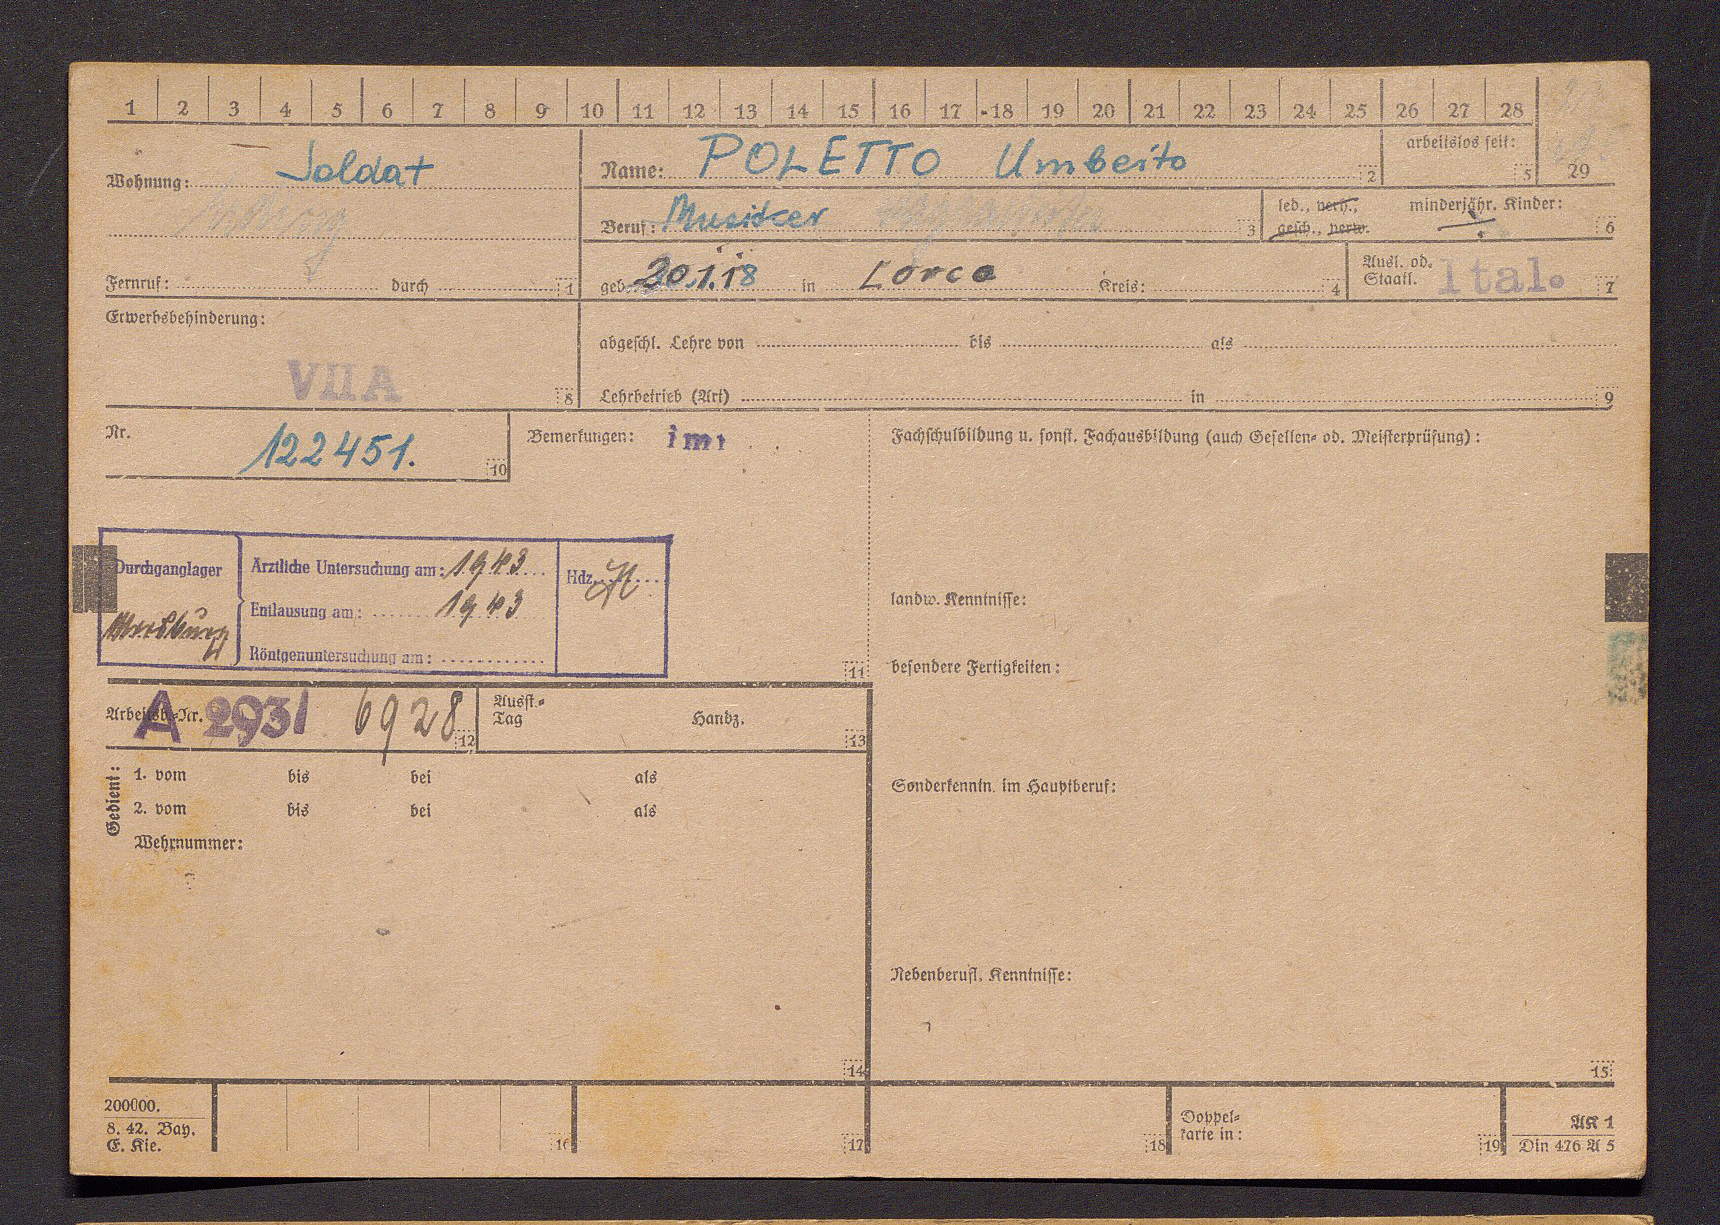 1 2 3 4 5 6 7 8 9 10 11 12 13 14 15 16 17 18 19 20 21 22 23 24 25 26 27 28
29
Wohnung: Soldat
Name: POLETTO Umberto 2
arbeitslos seit: 5
Beruf: Musiker 3
led., verh.,
gesch., verw.
minderjähr. Kinder: 6
Fernruf: durch 1
geb. 20.1.18 in Lorco Kreis: 4
Ausl. od.
Staatl. Ital. 7
Erwerbsbehinderung:
VII A 8
abgeschl. Lehre von bis als
Lehrbetrieb (Art) in 9
Nr. 122451. 10
Bemerkungen:
Fachschulbildung u. sonst. Fachausbildung (auch Gesellen- od. Meisterprüfung):
Durchganglager
Ärztliche Untersuchung am: 1943
Hdz.
Entlausung am: 1943
Röntgenuntersuchung am:
11
landw. Kenntnisse:
besondere Fertigkeiten:
Arbeitsb.-Nr. A 2931 6928 12
Ausst.-
Tag Handz. 13
Gedient:
1. vom bis bei als
2. vom bis bei als
Wehrnummer:
Sonderkenntn. im Hauptberuf:
Nebenberufl. Kenntnisse:
14
15
200000.
8. 42. Bay.
E. Kie.
16
17
18
Doppel-
karte in: 19
AK 1
Din 476 A 5